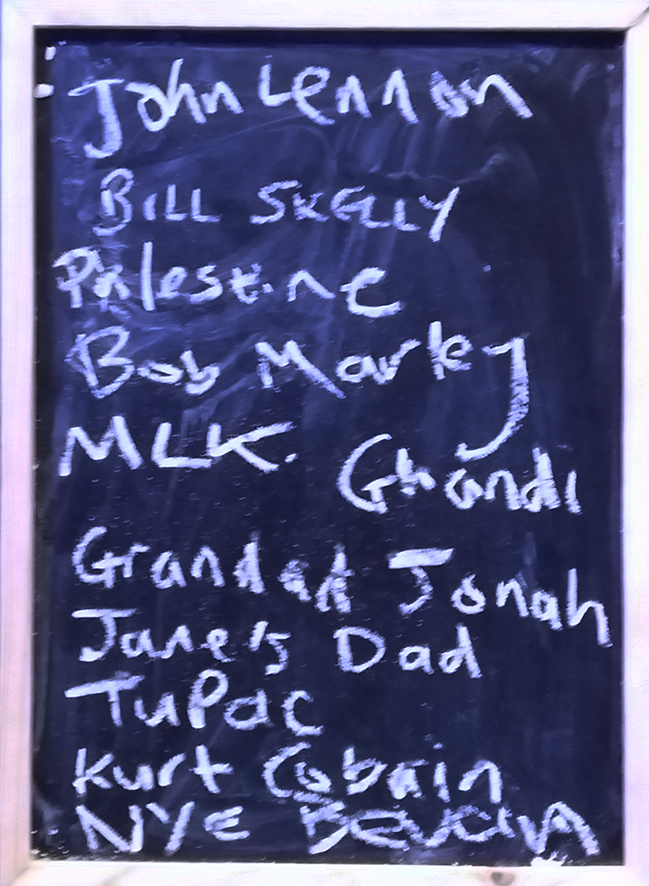 John Lennon
BILL SKELLY
Palestine
Bob Marley
MLK. Ghandi
Grandad Jonah
Jane's Dad
TuPac
Kurt Cobain
NYe